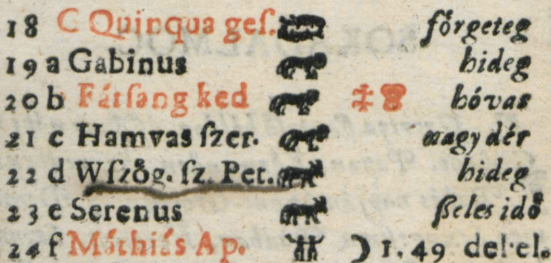 18 C Quinqua geſ. förgeteg
19 a Gabinus hideg
20 b Fárſang ked hóvas
21 c Hamvas ſzer. nagy dér
22 d Wſzög. ſz. Pet. hideg
23 e Serenus ſzeles idő
24 f Máthiás Ap. ☽ 1. 49 del. el.